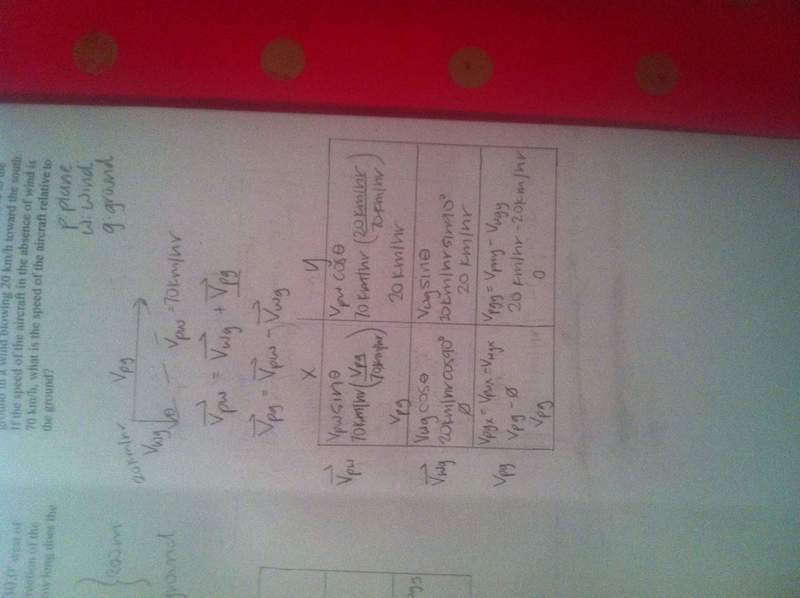 ground in a wind blowing 20 km/h toward the south.
If the speed of the aircraft in the absence of wind is
70 km/h, what is the speed of the aircraft relative to
the ground?
p plane
w. wind
g ground
20 km/hr
Vpg
Vwg
θ
Vpw = 70 km/hr
Vpw = Vwg + Vpg
Vpg = Vpw - Vwg
X
y
Vpw
Vpw sinθ
70 km/hr (Vpg/70 km/hr)
Vpg
Vpw cosθ
70 km/hr (20 km/hr/70 km/hr)
20 km/hr
Vwg
Vwg cosθ
20 km/hr cos 90°
Ø
Vwg sinθ
20 km/hr sin 90°
20 km/hr
Vpg
Vpgx = Vpwx - Vwgx
Vpg - Ø
Vpg
Vpgy = Vpwy - Vwgy
20 km/hr - 20 km/hr
0
west of
ow long does the
ground